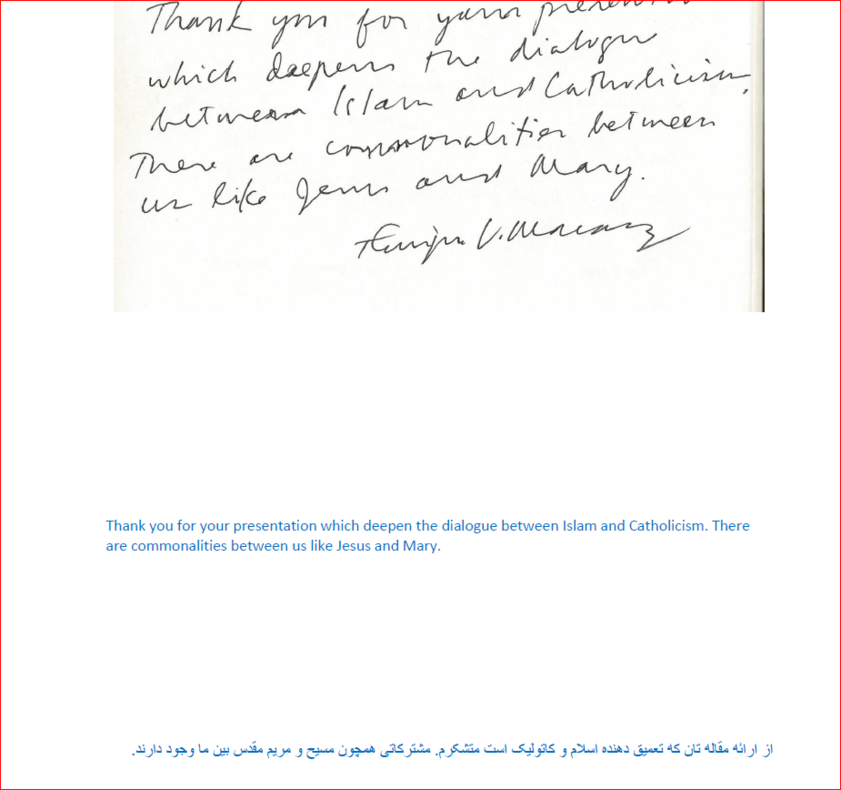 Thank you for your
which deepens the dialogue
between Islam and Catholicism.
There are commonalities between
us like Jesus and Mary.
Thank you for your presentation which deepen the dialogue between Islam and Catholicism. There
are commonalities between us like Jesus and Mary.
از ارائه مقاله تان که تعمیق دهنده اسلام و کاتولیک است متشکرم. مشترکاتی همچون مسیح و مریم مقدس بین ما وجود دارند.